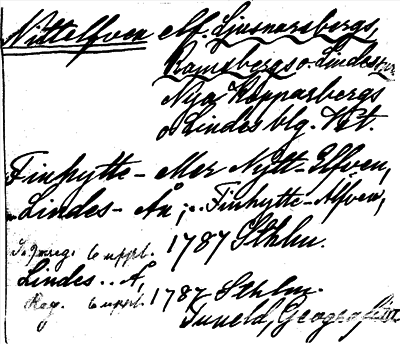 Nittelfven elf. Ljusnarsbergs,
Ramsbergs o. Lindes
Nya Kopparbergs
o Lindes blg. Vstm.
Finhytte- eller Nytt-Elfven,
Lindes-Ån; Finhytte-Alfven,
6 uppl. 1787 Sthlm.
Lindes.. Å,
Reg. 6 uppl. 1787 Sthlm.
Tuneld, Geografi III